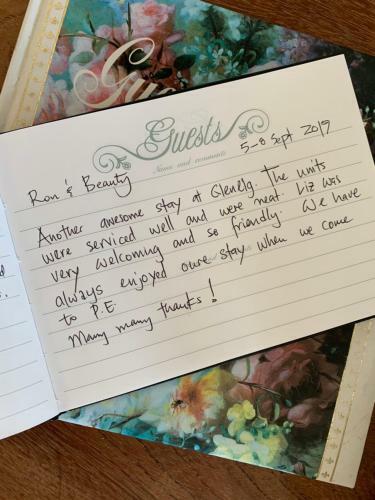 Gu
Guests
Name and comments
5-8 Sept 2019
Ron & Beauty
Another awesome stay at Glenelg. The units
were serviced well and were neat. Liz was
very welcoming and so friendly. We have
always enjoyed oure stay when we come
to P.E.
Many many thanks!